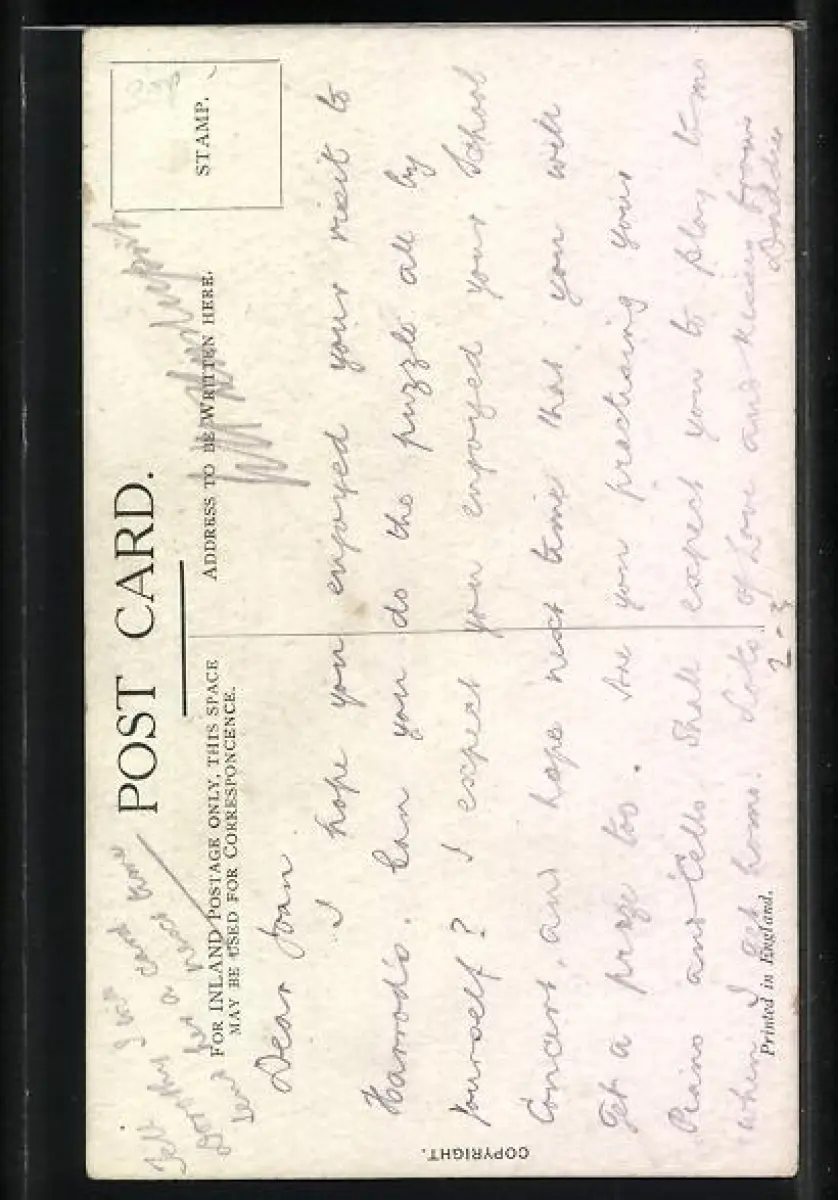 Tell
Dorothy I will
send her a card
next time
POST CARD.
FOR INLAND POSTAGE ONLY, THIS SPACE
MAY BE USED FOR CORRESPONDENCE.
ADDRESS TO BE WRITTEN HERE.
STAMP.
Dear Joan
I hope you enjoyed your visit to
Harrods. Can you do the puzzle all by
yourself? I expect you enjoyed your School
Concert, and hope next time that you will
get a prize too. Are you practising your
Piano and Cello. Shall expect you to play to me
when I get home. Lots of Love and Kisses from
Daddie
2-3
Printed in England.
COPYRIGHT.